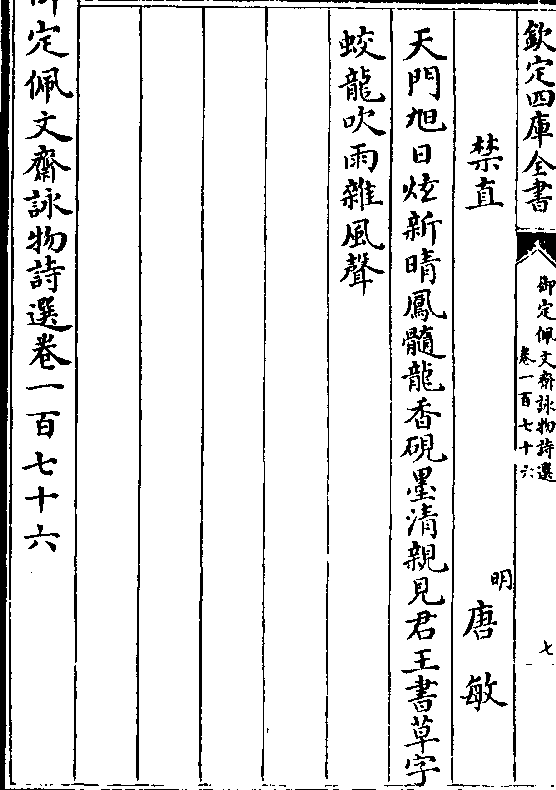 欽定四庫全書
御定佩文齋詠物詩選
卷一百七十六
七
禁直
明
唐敏
天門旭日炫新晴鳳髓龍香硯墨清親見君王書草字
蛟龍吹雨雜風聲
御定佩文齋詠物詩選卷一百七十六